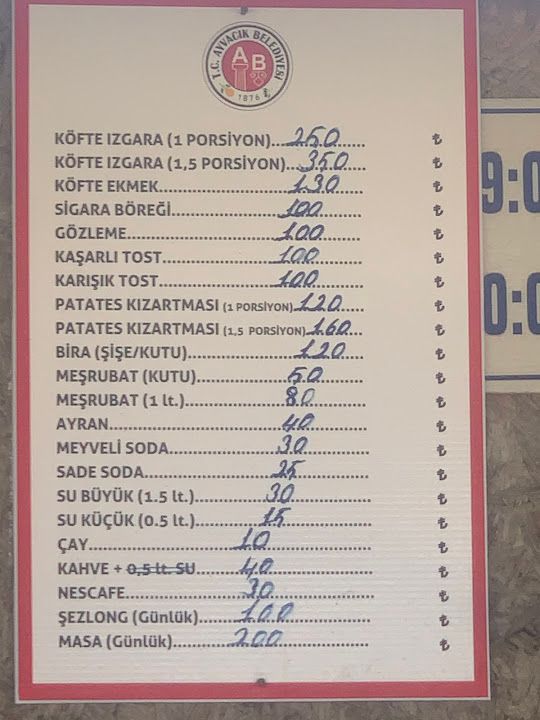 T.C. AYVACIK BELEDİYESİ
AB
1876
KÖFTE IZGARA (1 PORSİYON)....250...... ₺
KÖFTE IZGARA (1,5 PORSİYON)...350...... ₺
KÖFTE EKMEK...............130...... ₺
SİGARA BÖREĞİ...............100...... ₺
GÖZLEME...............100...... ₺
KAŞARLI TOST...............100...... ₺
KARIŞIK TOST...............100...... ₺
PATATES KIZARTMASI (1 PORSİYON)..120...... ₺
PATATES KIZARTMASI (1,5 PORSİYON)..160...... ₺
BİRA (ŞİŞE/KUTU)...............120...... ₺
MEŞRUBAT (KUTU)...............50...... ₺
MEŞRUBAT (1 lt.)...............80...... ₺
AYRAN...............40...... ₺
MEYVELİ SODA...............30...... ₺
SADE SODA...............25...... ₺
SU BÜYÜK (1.5 lt.)...............30...... ₺
SU KÜÇÜK (0.5 lt.)...............15...... ₺
ÇAY...............10...... ₺
KAHVE + 0,5 lt. SU...............40...... ₺
NESCAFE...............30...... ₺
ŞEZLONG (Günlük)...............100...... ₺
MASA (Günlük)...............200...... ₺
9:0
0:0